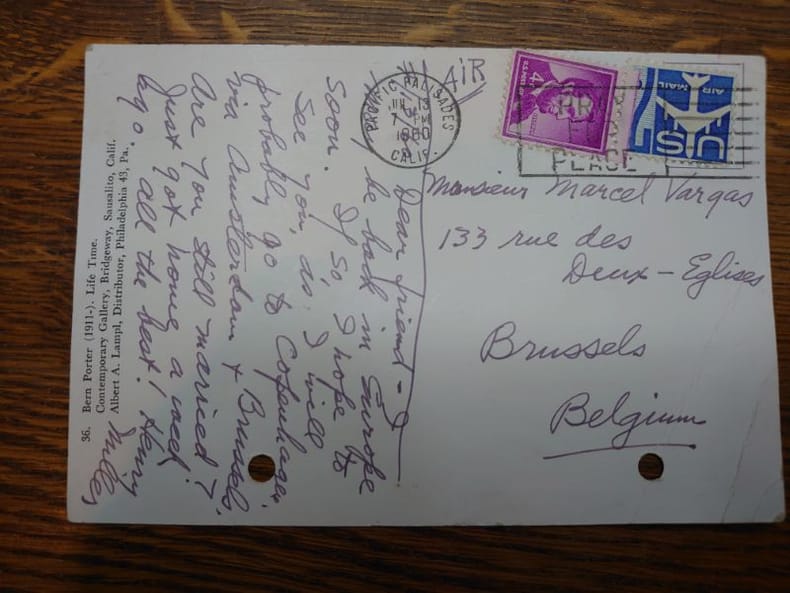 36. Bern Porter (1911-). Life Time.
Contemporary Gallery, Bridgeway, Sausalito, Calif.
Albert A. Lampl, Distributor, Philadelphia 43, Pa.
Dear friend - I
may be back in Europe
soon. If so, I hope to
see you, as I will
probably go to Copenhagen
via Amsterdam + Brussels.
Are you still married?
Just got home a week
ago. All the best! Henry
Miller
AIR
PACIFIC PALISADES
13
PM
1960
CALIF.
4¢
AIR MAIL
US
Monsieur Marcel Vargas
133 rue des
Deux-Eglises
Brussels
Belgium